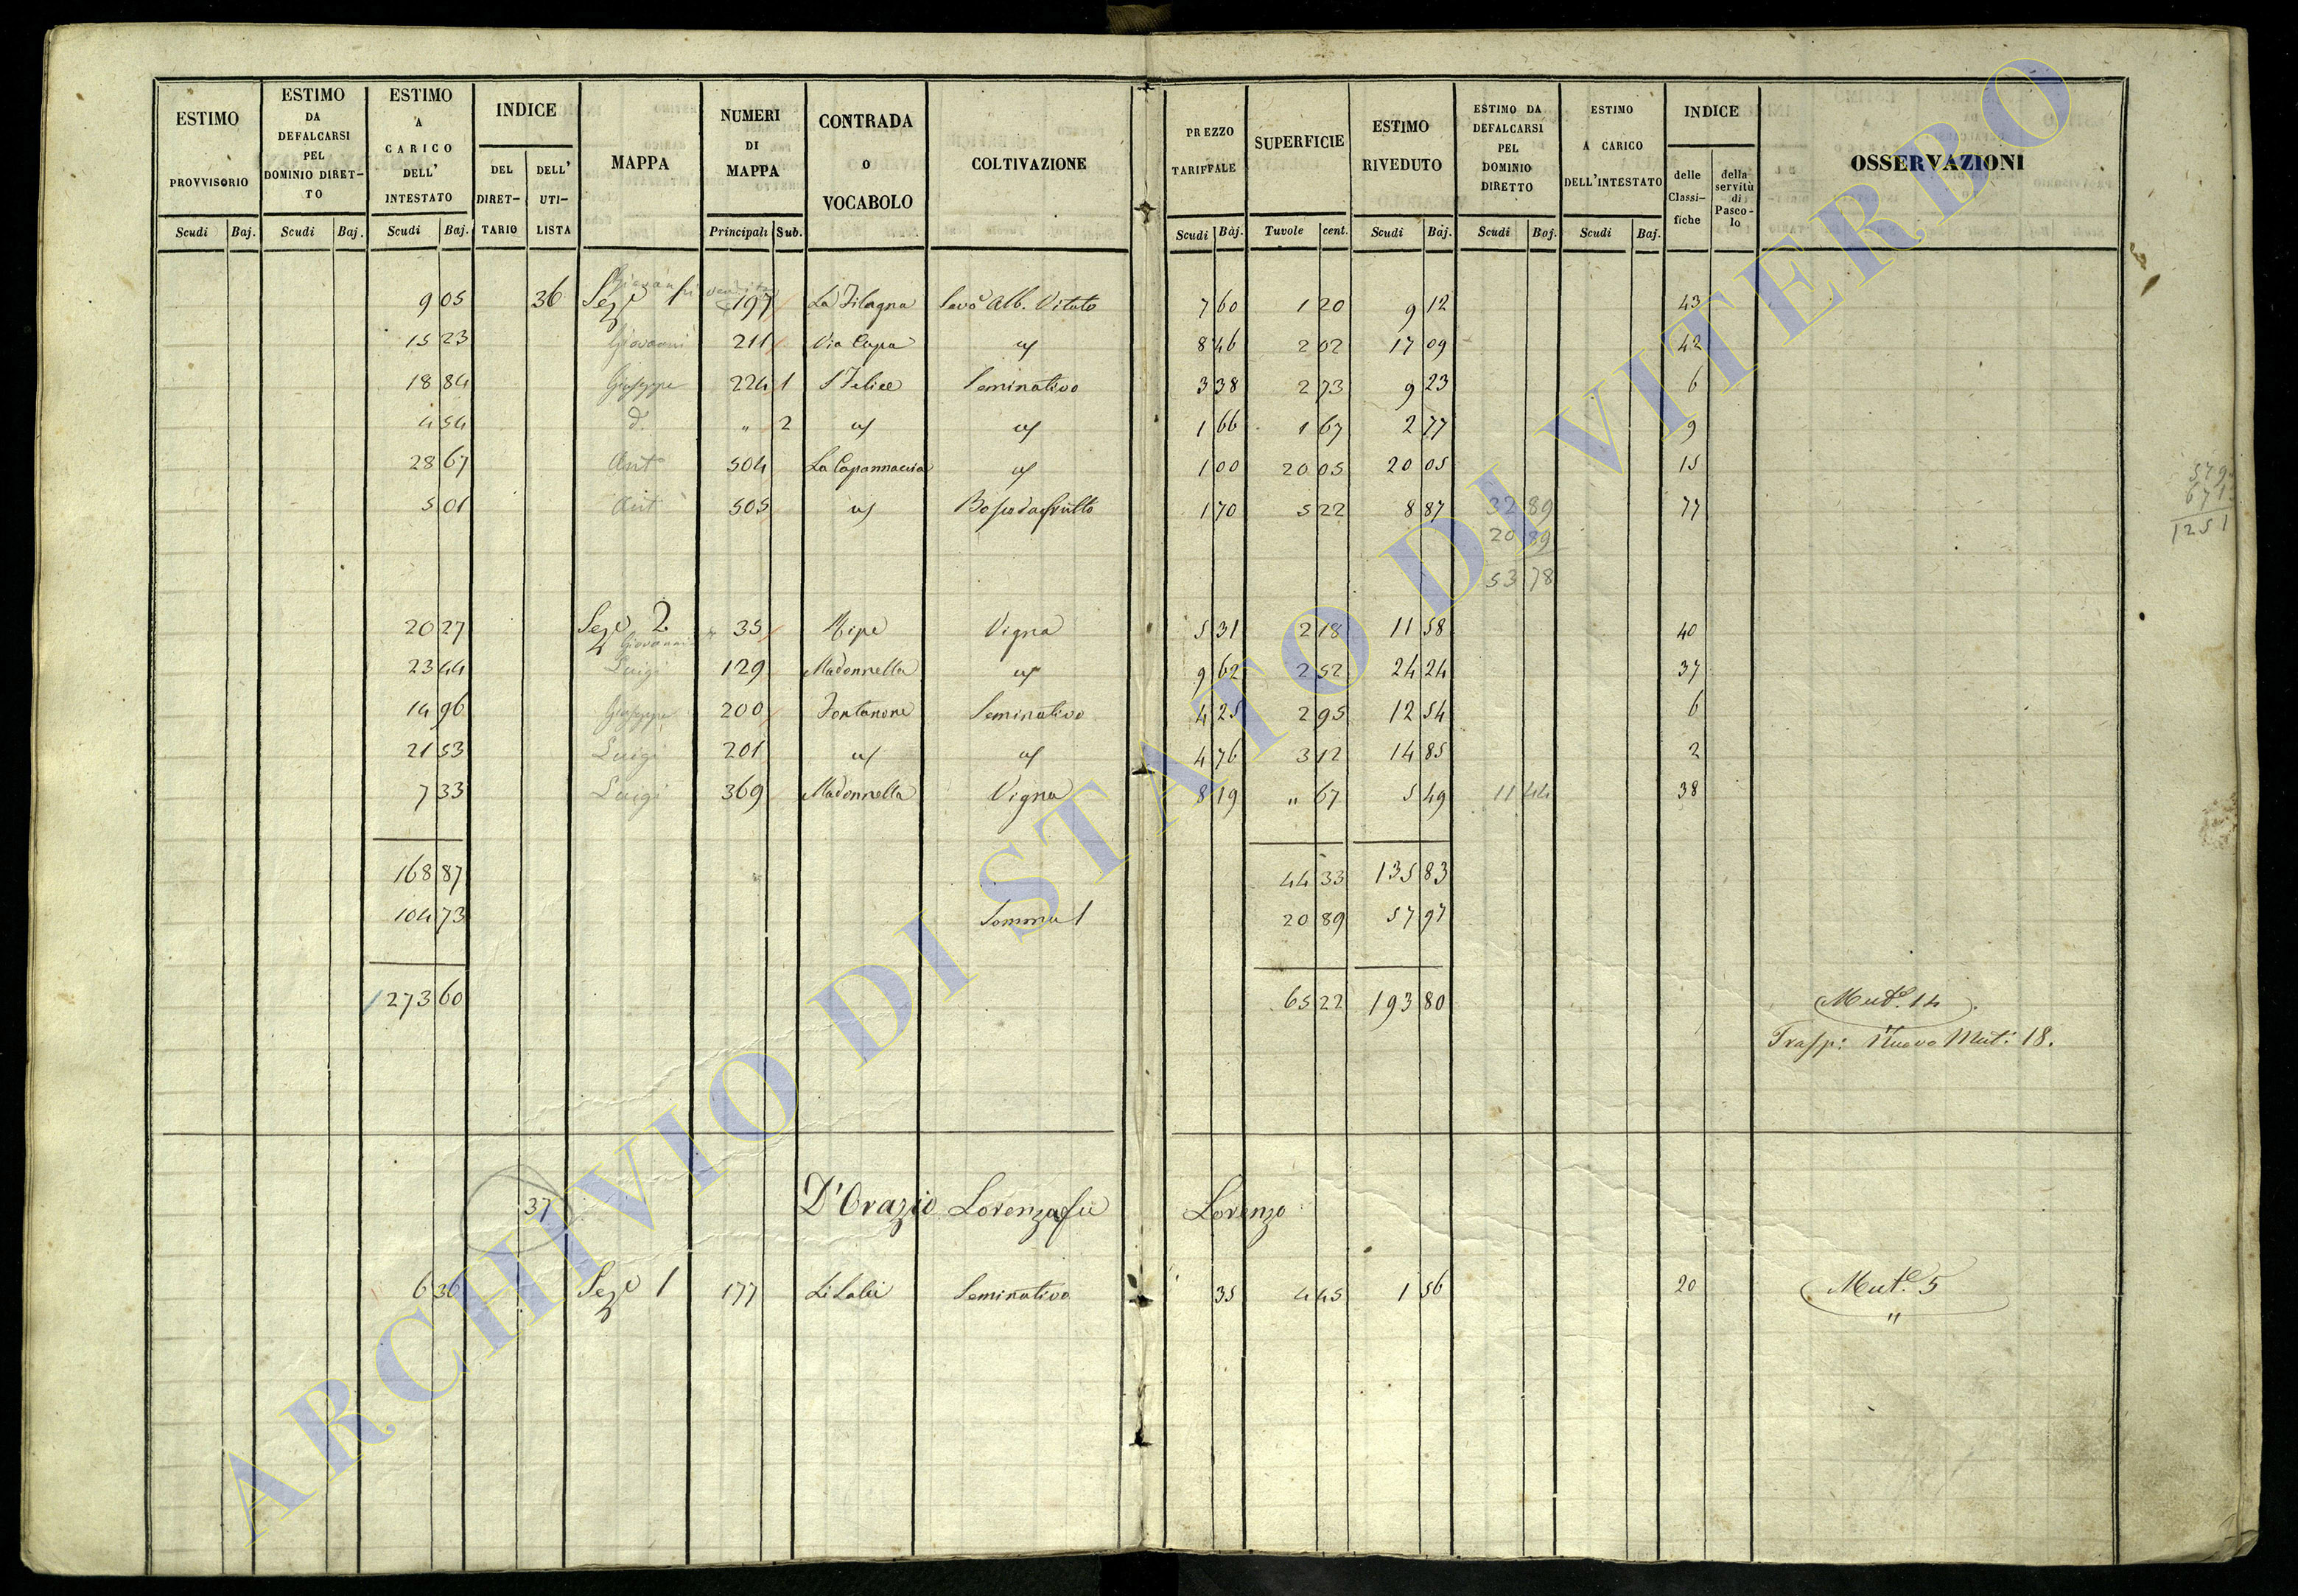 ESTIMO PROVVISORIO | ESTIMO DA DEFALCARSI PEL DOMINIO DIRETTO | ESTIMO A CARICO DELL' INTESTATO | INDICE DEL DIRETTARIO | DELL' UTILISTA | MAPPA | NUMERI DI MAPPA | CONTRADA o VOCABOLO | COLTIVAZIONE | PREZZO TARIFFALE | SUPERFICIE | ESTIMO RIVEDUTO | ESTIMO DA DEFALCARSI PEL DOMINIO DIRETTO | ESTIMO A CARICO DELL'INTESTATO | INDICE delle Classifiche | della servitù di Pascolo | OSSERVAZIONI
Scudi | Baj. | Scudi | Baj. | Scudi | Baj. | Principali | Sub. | Scudi | Baj. | Tavole | cent. | Scudi | Baj. | Scudi | Baj. | Scudi | Baj.
9 05 | 36 | Seze 1 Giovanni | 197 | La Filagna | Sevo Alb. Vitato | 7 60 | 1 20 | 9 12 | 43
15 23 | Giovanni | 211 | Via Cupa | 8 46 | 2 02 | 17 09 | 42
18 84 | Giuseppe | 224 1 | S Felice | Seminativo | 3 38 | 2 73 | 9 23 | 6
4 54 | d. | " 2 | 1 66 | 1 67 | 2 77 | 9
28 67 | Anto | 504 | La Capannaccia | 1 00 | 20 05 | 20 05 | 15
5 01 | Ant | 505 | Bosco da frutto | 1 70 | 5 22 | 8 87 | 32 89 | 77
20 89
53 78
1251
20 27 | Seze 2 Giovanni | 35 | Ripe | Vigna | 5 31 | 2 18 | 11 58 | 40
23 44 | Luigi | 129 | Madonnella | 9 62 | 2 52 | 24 24 | 37
14 96 | Giuseppe | 200 | Fontanone | Seminativo | 4 25 | 2 95 | 12 54 | 6
21 53 | Luigi | 201 | 4 76 | 3 12 | 14 85 | 2
7 33 | Luigi | 369 | Madonnella | Vigna | 8 19 | " 67 | 5 49 | 11 44 | 38
168 87 | 44 33 | 135 83
104 73 | Somma 1 | 20 89 | 57 97
273 60 | 65 22 | 193 80 | Mute. 14
Trasp: Nuovo Mut: 18.
37 | D'Orazio Lorenza fu Lorenzo
6 36 | Seze 1 | 177 | Li Lali | Seminativo | 35 | 4 45 | 1 56 | 20 | Mute. 5
"
ARCHIVIO DI STATO DI VITERBO